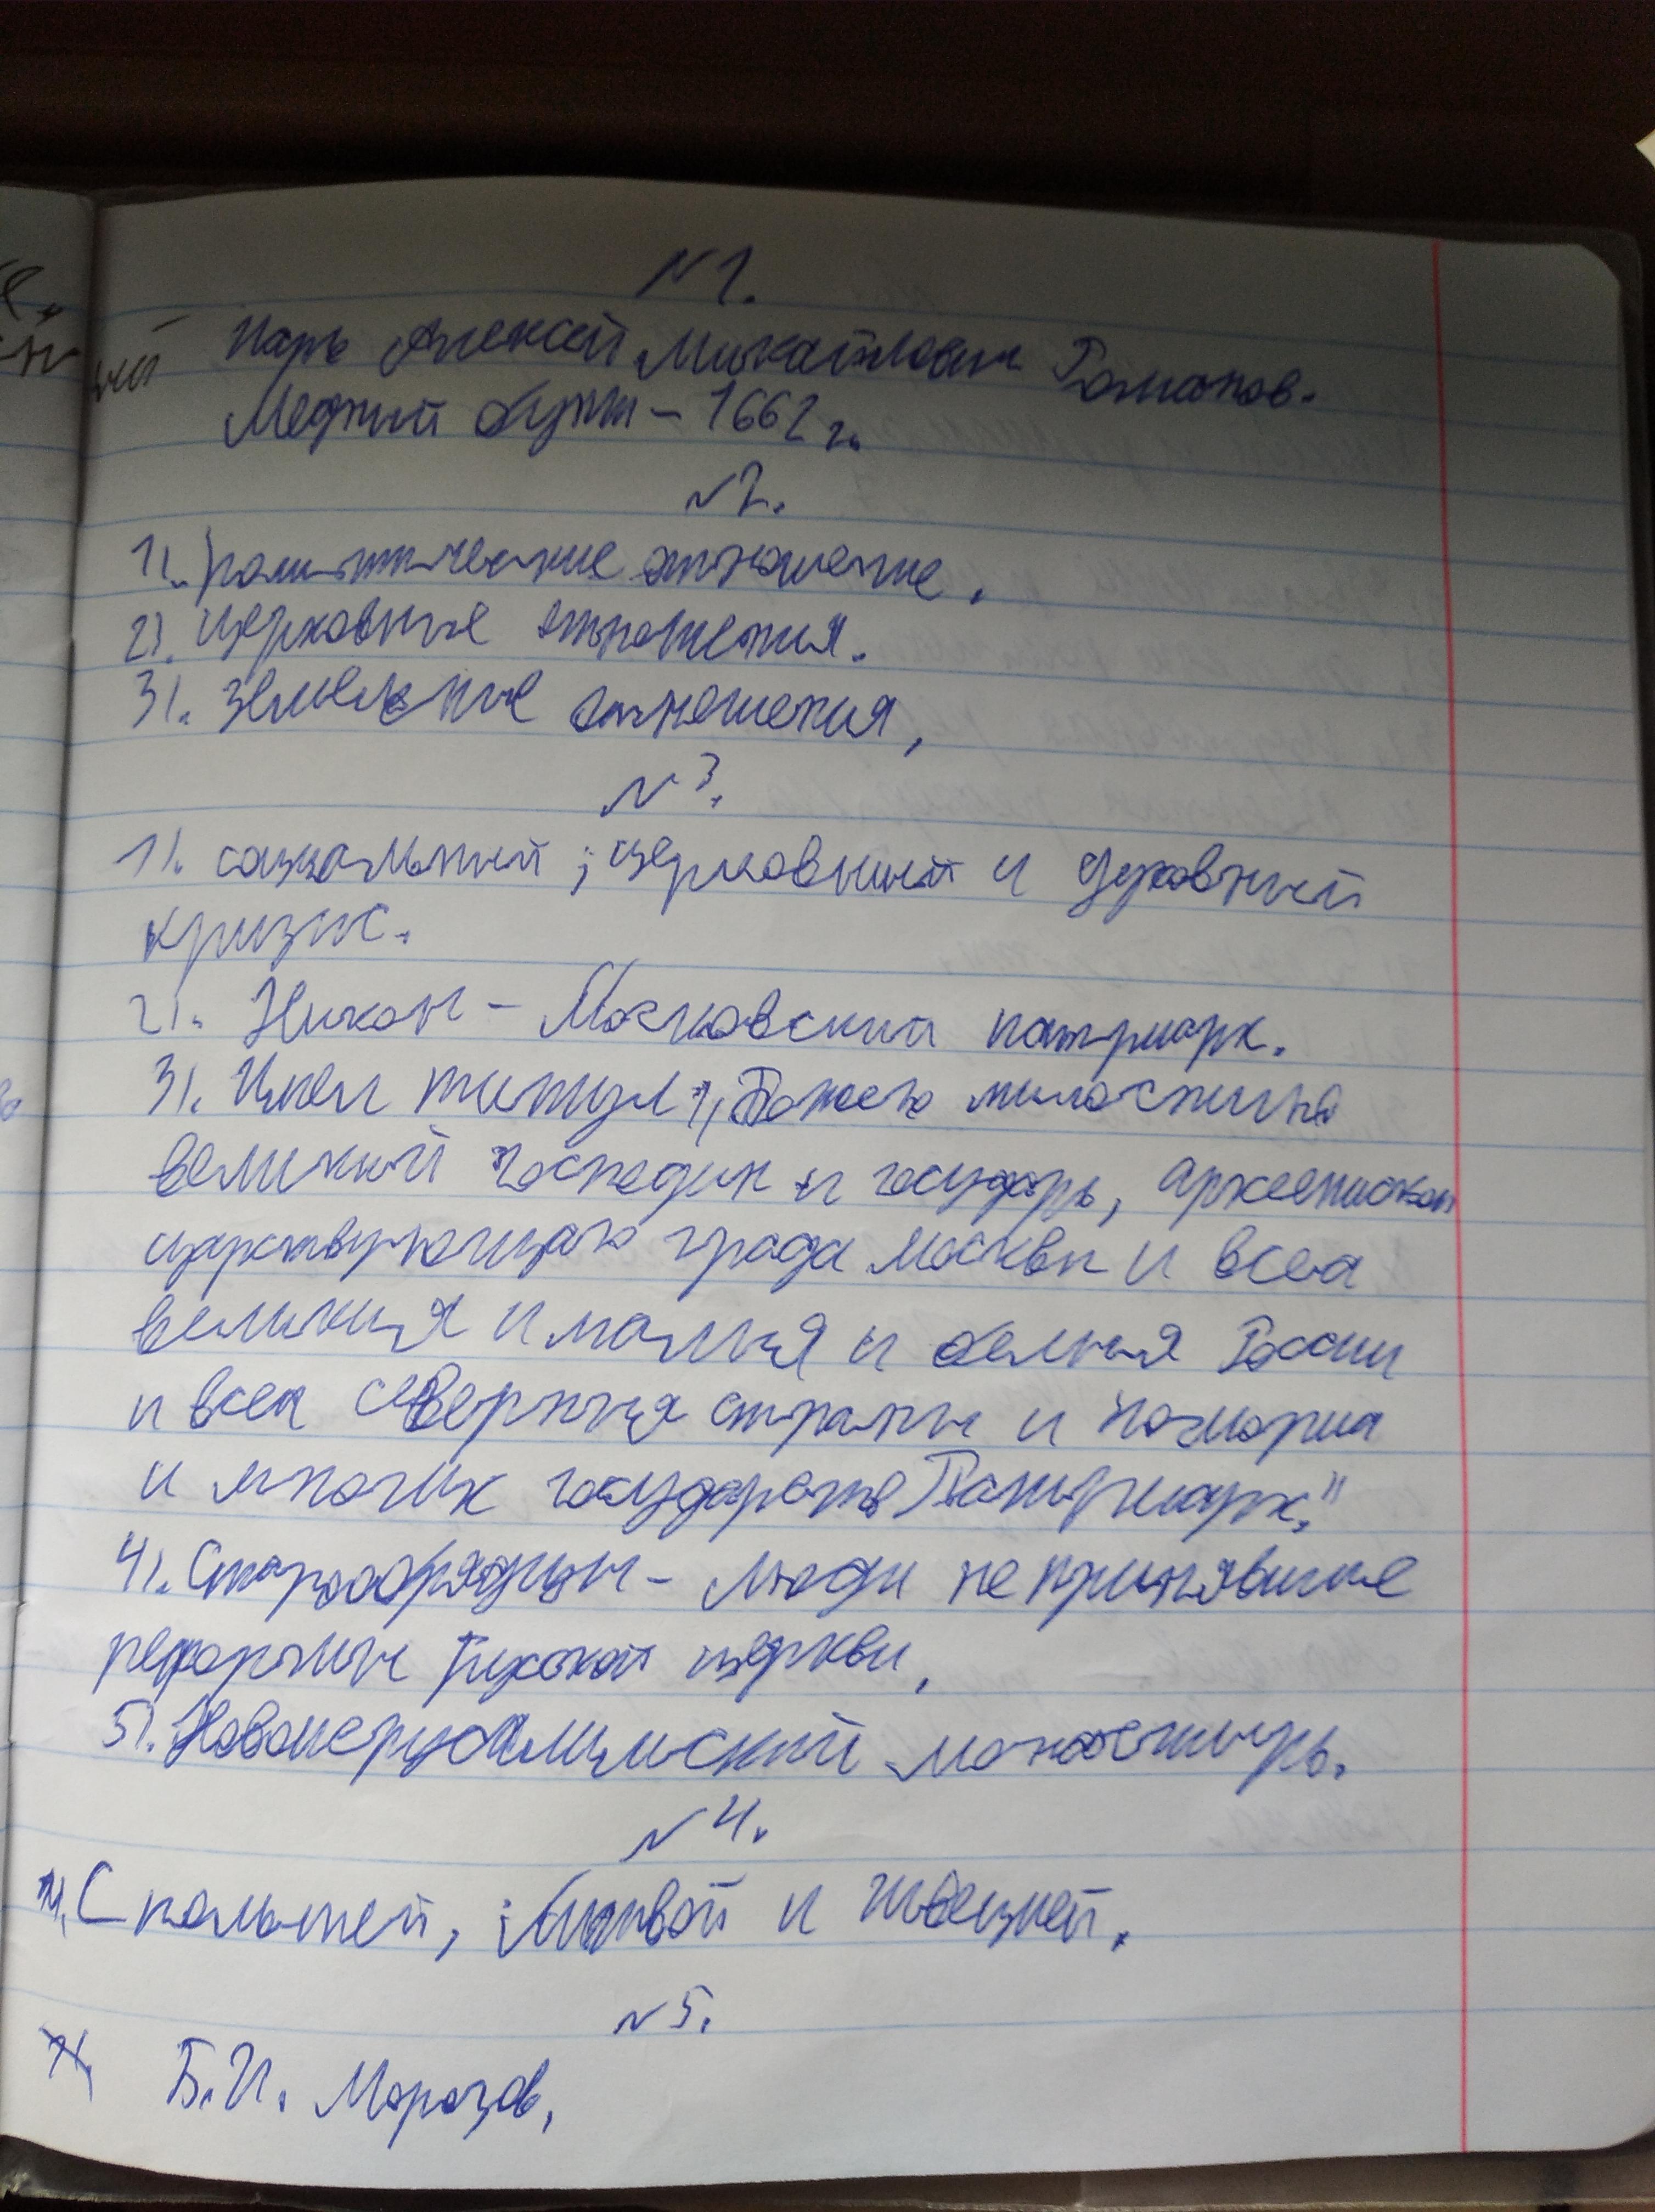 №1.
Царь Алексей Михайлович Романов.
Медный бунт – 1662 г.
№2.
1). политические отношение.
2). церковные отношения.
3). земельные отношения,
№3.
1). социальный, церковный и духовный
кризис.
2). Никон – Московский патриарх.
3). Имел титул „Божею милостию
великий господин и государь, архиепископ
царствующаго града Москвы и всеа
великия и малыя и белыя России
и всеа северныя страны и помориа
и многих государств Патриарх."
4). Старообрядцы – люди не принявшие
реформы Русской церкви,
5). Новоиерусалимский монастырь.
№4.
С польшей, Литвой и швецией.
№5.
Б.И. Морозов,